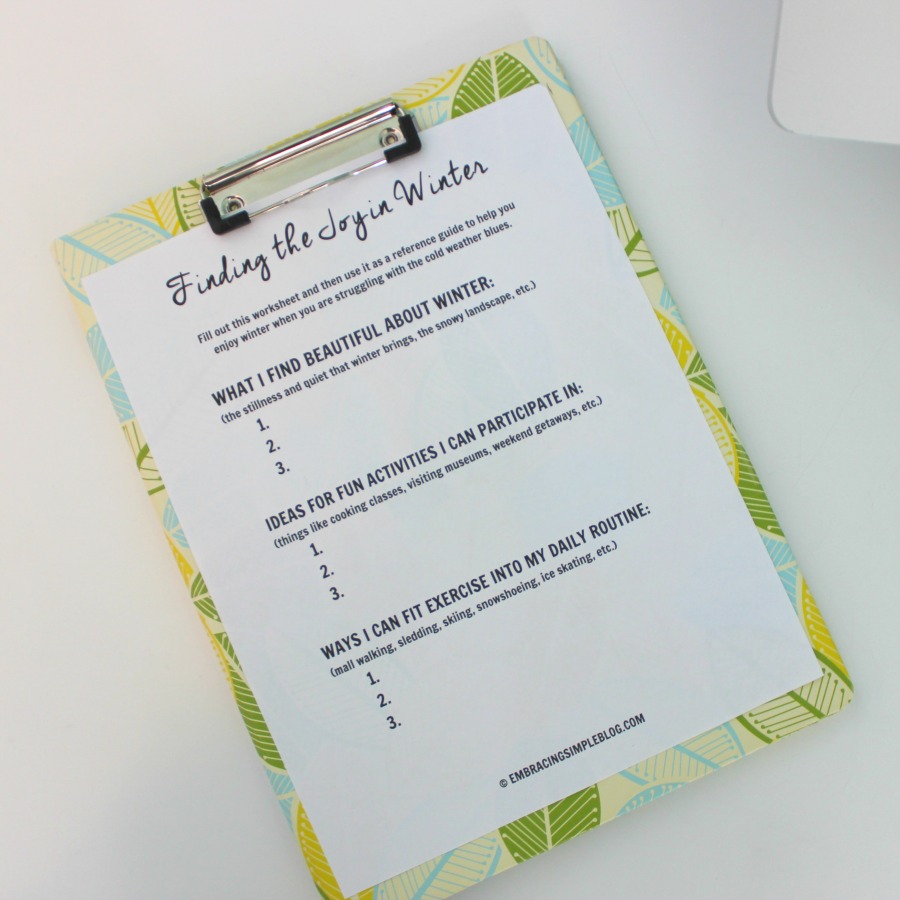 Finding the Joy in Winter
Fill out this worksheet and then use it as a reference guide to help you
enjoy winter when you are struggling with the cold weather blues.
WHAT I FIND BEAUTIFUL ABOUT WINTER:
(the stillness and quiet that winter brings, the snowy landscape, etc.)
1.
2.
3.
IDEAS FOR FUN ACTIVITIES I CAN PARTICIPATE IN:
(things like cooking classes, visiting museums, weekend getaways, etc.)
1.
2.
3.
WAYS I CAN FIT EXERCISE INTO MY DAILY ROUTINE:
(mall walking, sledding, skiing, snowshoeing, ice skating, etc.)
1.
2.
3.
© EMBRACINGSIMPLEBLOG.COM